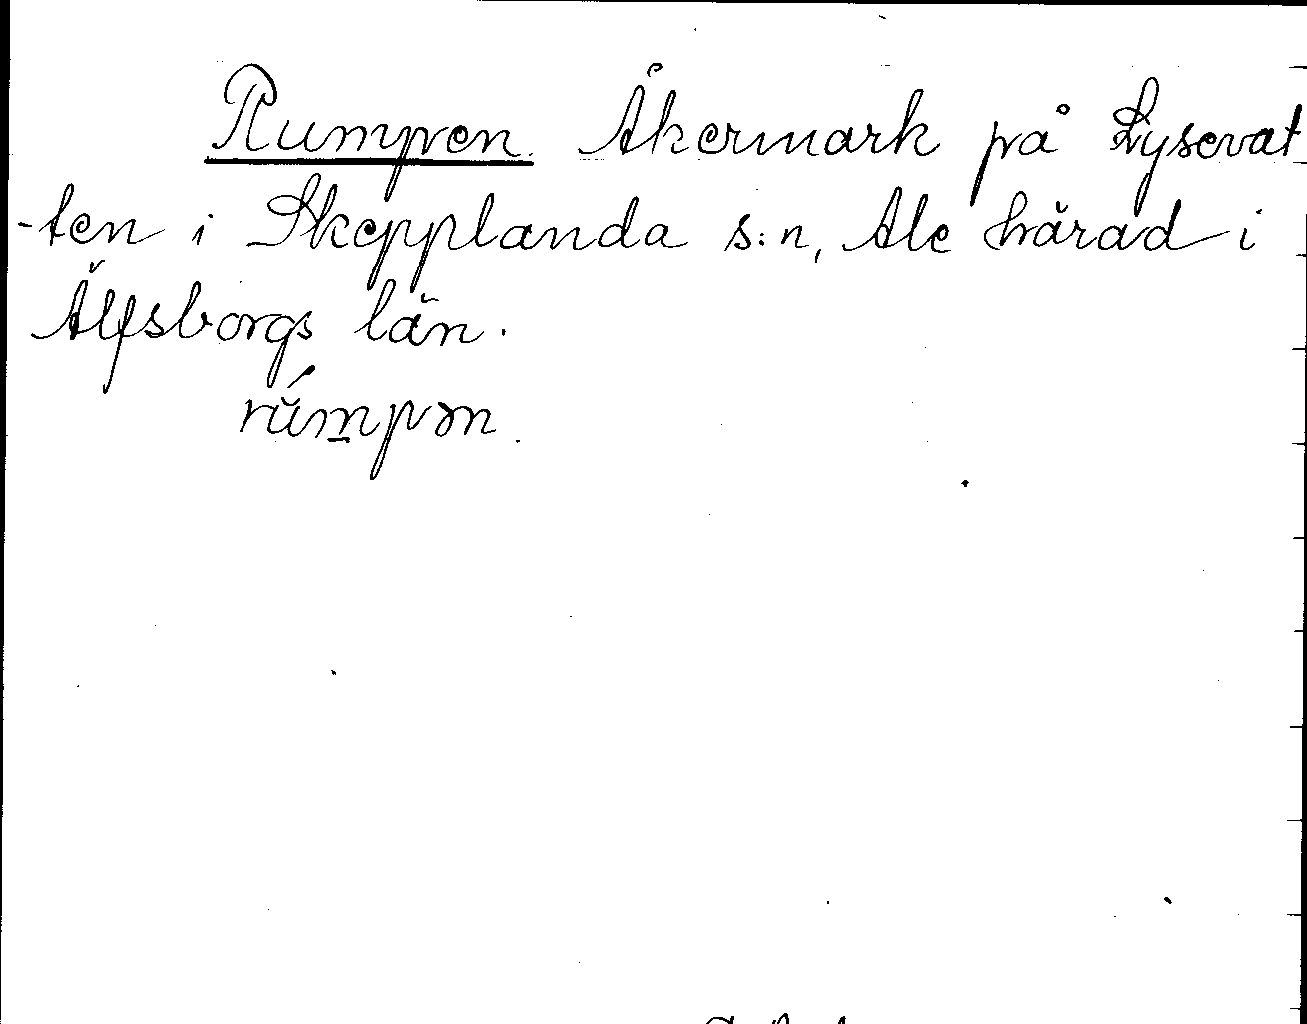 Rumpen. Åkermark på Lysevat
-ten i Skepplanda s:n, Ale härad i
Älfsborgs län.
rúmpən.